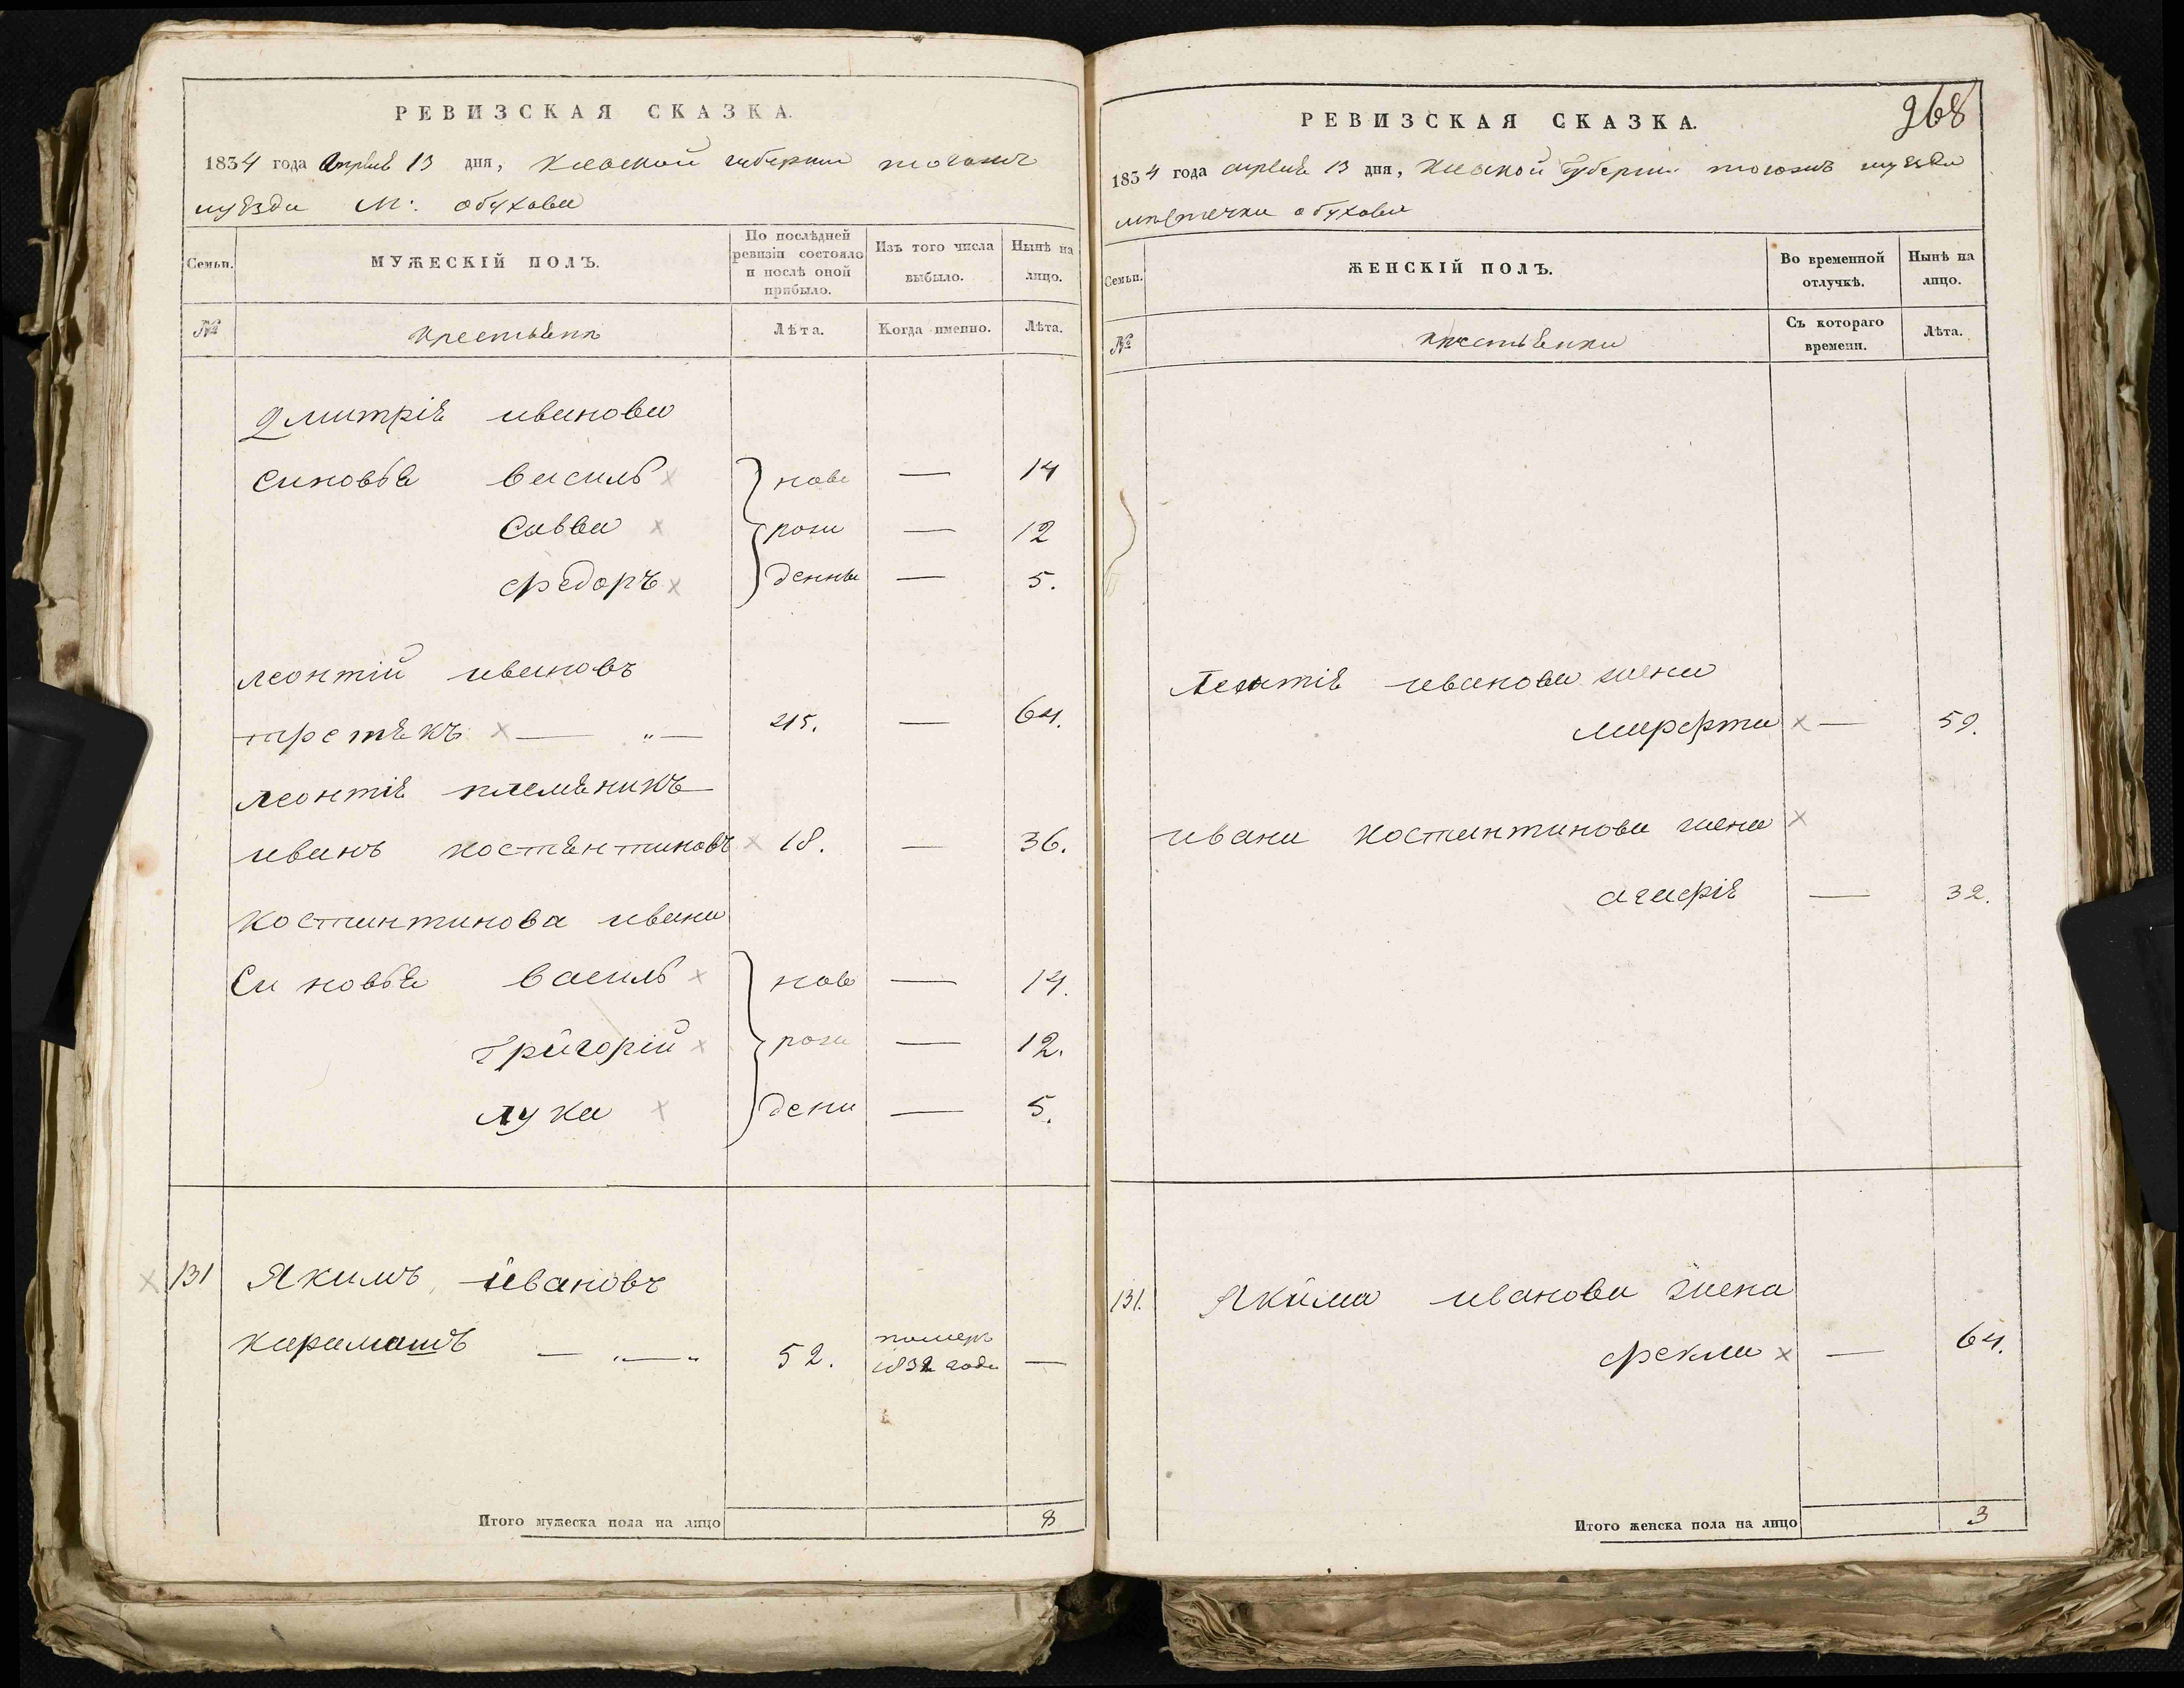 РЕВИЗСКАЯ СКАЗКА.
1834 года апреля 13 дня, Киевской губернии тогожъ
уезда М: обухова
Семьи.
МУЖЕСКІЙ ПОЛЪ.
По послѣдней ревизіи состояло и послѣ оной прибыло.
Изъ того числа выбыло.
Нынѣ на лицо.
№
крестьянъ
Лѣта.
Когда именно.
Лѣта.
Дмитрія иванова
синовья василь х } ново — 14
Савва х рожи — 12
федоръ х денны — 5.
леонтій ивановъ
х — „ — 45. — 64.
леонтія племяникъ
иванъ костянтиновъ х 18. — 36.
костантинова ивана
Синовья василь х } ново — 14.
Григорій х рожи — 12.
лука х дени — 5.
х 131 Якимъ ивановъ
карамашъ — „ — „ 52. померъ 1832 года —
Итого мужеска пола на лицо 8
968
РЕВИЗСКАЯ СКАЗКА.
1834 года апреля 13 дня, Киевской Губерніи тогожъ уезда
местечка обухова
Семьи.
ЖЕНСКІЙ ПОЛЪ.
Во временной отлучкѣ.
Нынѣ на лицо.
№
крестьянки
Съ котораго времени.
Лѣта.
Леонтія иванова жена
марфта х — 59.
ивана костантинова жена х
агафія — 32.
131. Якима иванова жена
фекла х — 64.
Итого женска пола на лицо 3